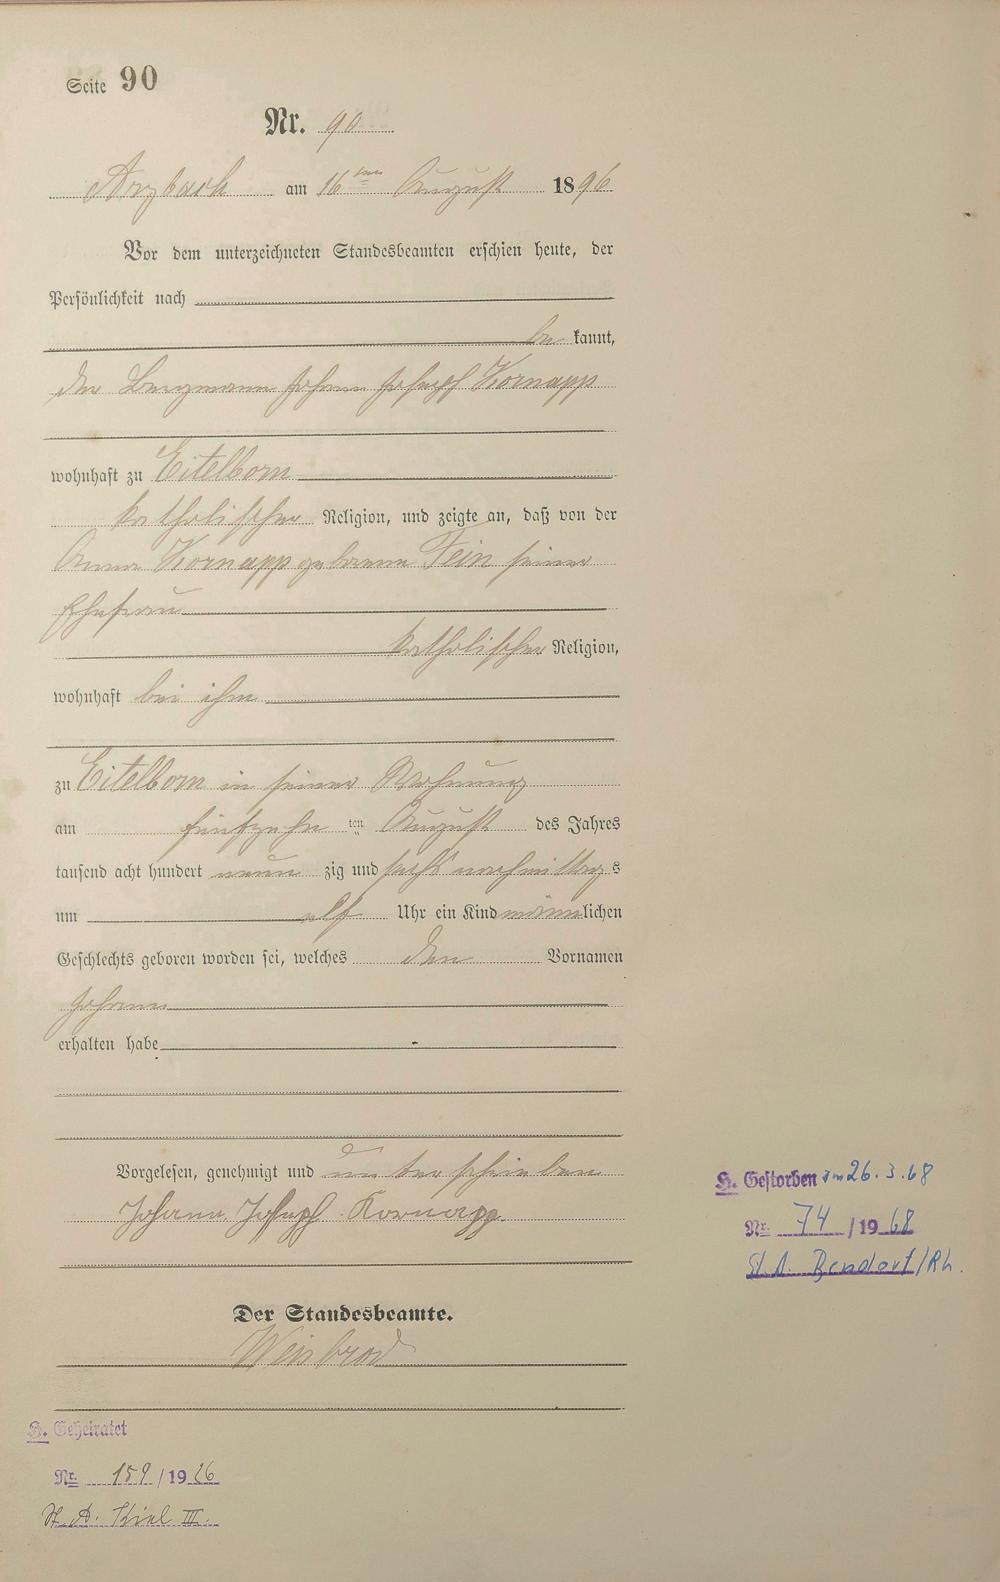 Seite 90
Nr. 90
Arzbach am 16ten August 1896
Vor dem unterzeichneten Standesbeamten erschien heute, der
Persönlichkeit nach
be kannt,
der Bergmann Johann Joseph Kornapp
wohnhaft zu Eitelborn
katholischer Religion, und zeigte an, daß von der
Anna Kornapp geborene Fein seiner
Ehefrau
katholischer Religion,
wohnhaft bei ihm
zu Eitelborn in seiner Wohnung
am fünfzehn ten August des Jahres
tausend acht hundert neun zig und sechs nachmittags
um elf Uhr ein Kind männlichen
Geschlechts geboren worden sei, welches den Vornamen
Johann
erhalten habe
Vorgelesen, genehmigt und unterschrieben
Johann Joseph Kornapp
H. Gestorben am 26.3.68
Nr. 74/1968
St. A. Bendorf/Rh.
Der Standesbeamte.
Weisbrod
H. Geheiratet
Nr. 159/1926
St. A. Kiel III.